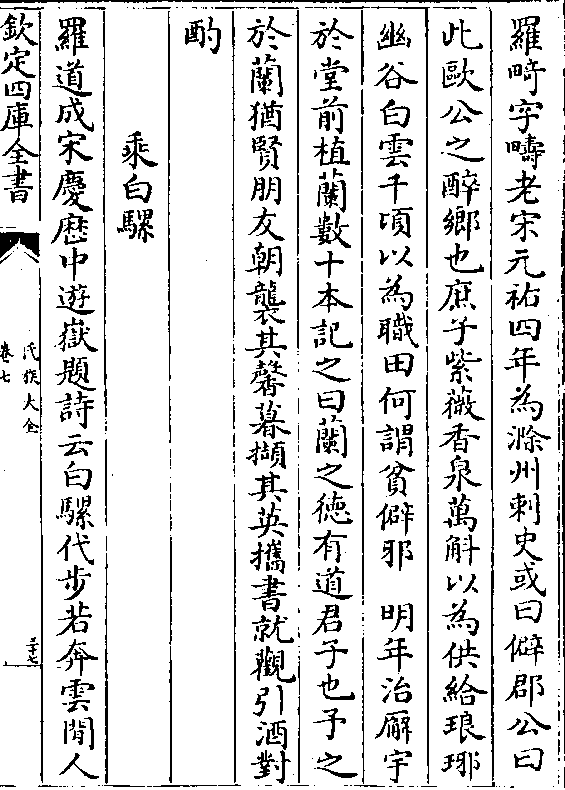 羅畸字疇老宋元祐四年為滁州刺史或曰僻郡公曰
此歐公之醉鄉也庶子紫薇香泉萬斛以為供給琅琊
幽谷白雲千頃以為職田何謂貧僻邪　明年治廨宇
於堂前植蘭數十本記之曰蘭之德有道君子也予之
於蘭猶賢朋友朝襲其馨暮擷其英攜書就觀引酒對
酌
乘白騾
羅道成宋慶歷中遊嶽題詩云白騾代步若奔雲閒人
欽定四庫全書
氏族大全
卷七
三十七